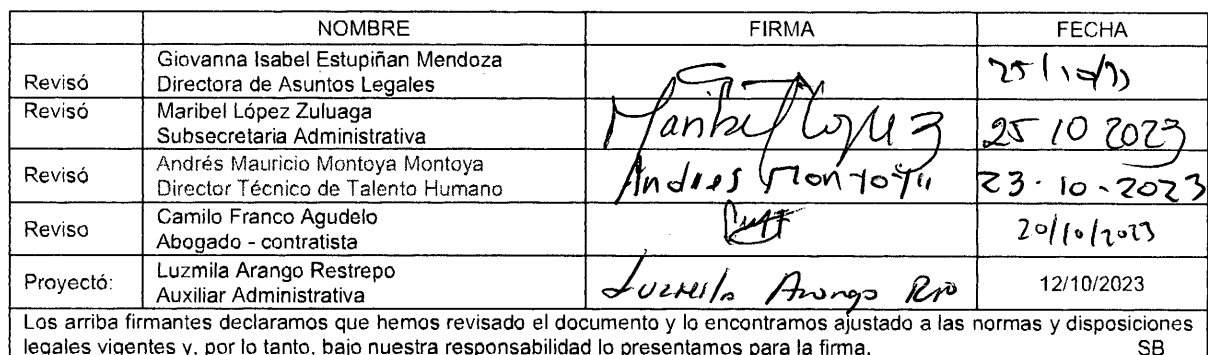 NOMBRE FIRMA FECHA
Giovanna Isabel Estupiñan Mendoza
Revisó Directora de Asuntos Legales
Revisó Maribel López Zuluaga
Subsecretaria Administrativa Maribel López 25 10 2023
Andrés Mauricio Montoya Montoya
Revisó Director Técnico de Talento Humano Andres Montoya 23-10-2023
Reviso Camilo Franco Agudelo
Abogado - contratista 20/10/2023
Proyectó: Luzmila Arango Restrepo
Auxiliar Administrativa Luzmila Arango 12/10/2023
Los arriba firmantes declaramos que hemos revisado el documento y lo encontramos ajustado a las normas y disposiciones
legales vigentes y, por lo tanto, bajo nuestra responsabilidad lo presentamos para la firma. SB